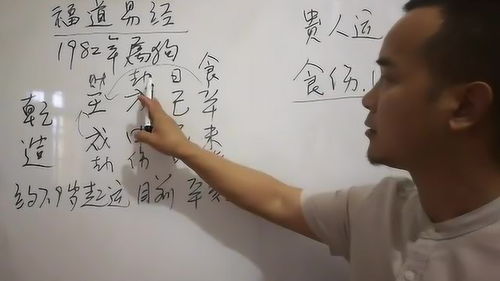 福道易经
1982年属狗
财 劫 日 食
乾 壬 己 辛
造 戌 未
劫 伤
约7.9岁起运 目前 辛
貴人运
食伤